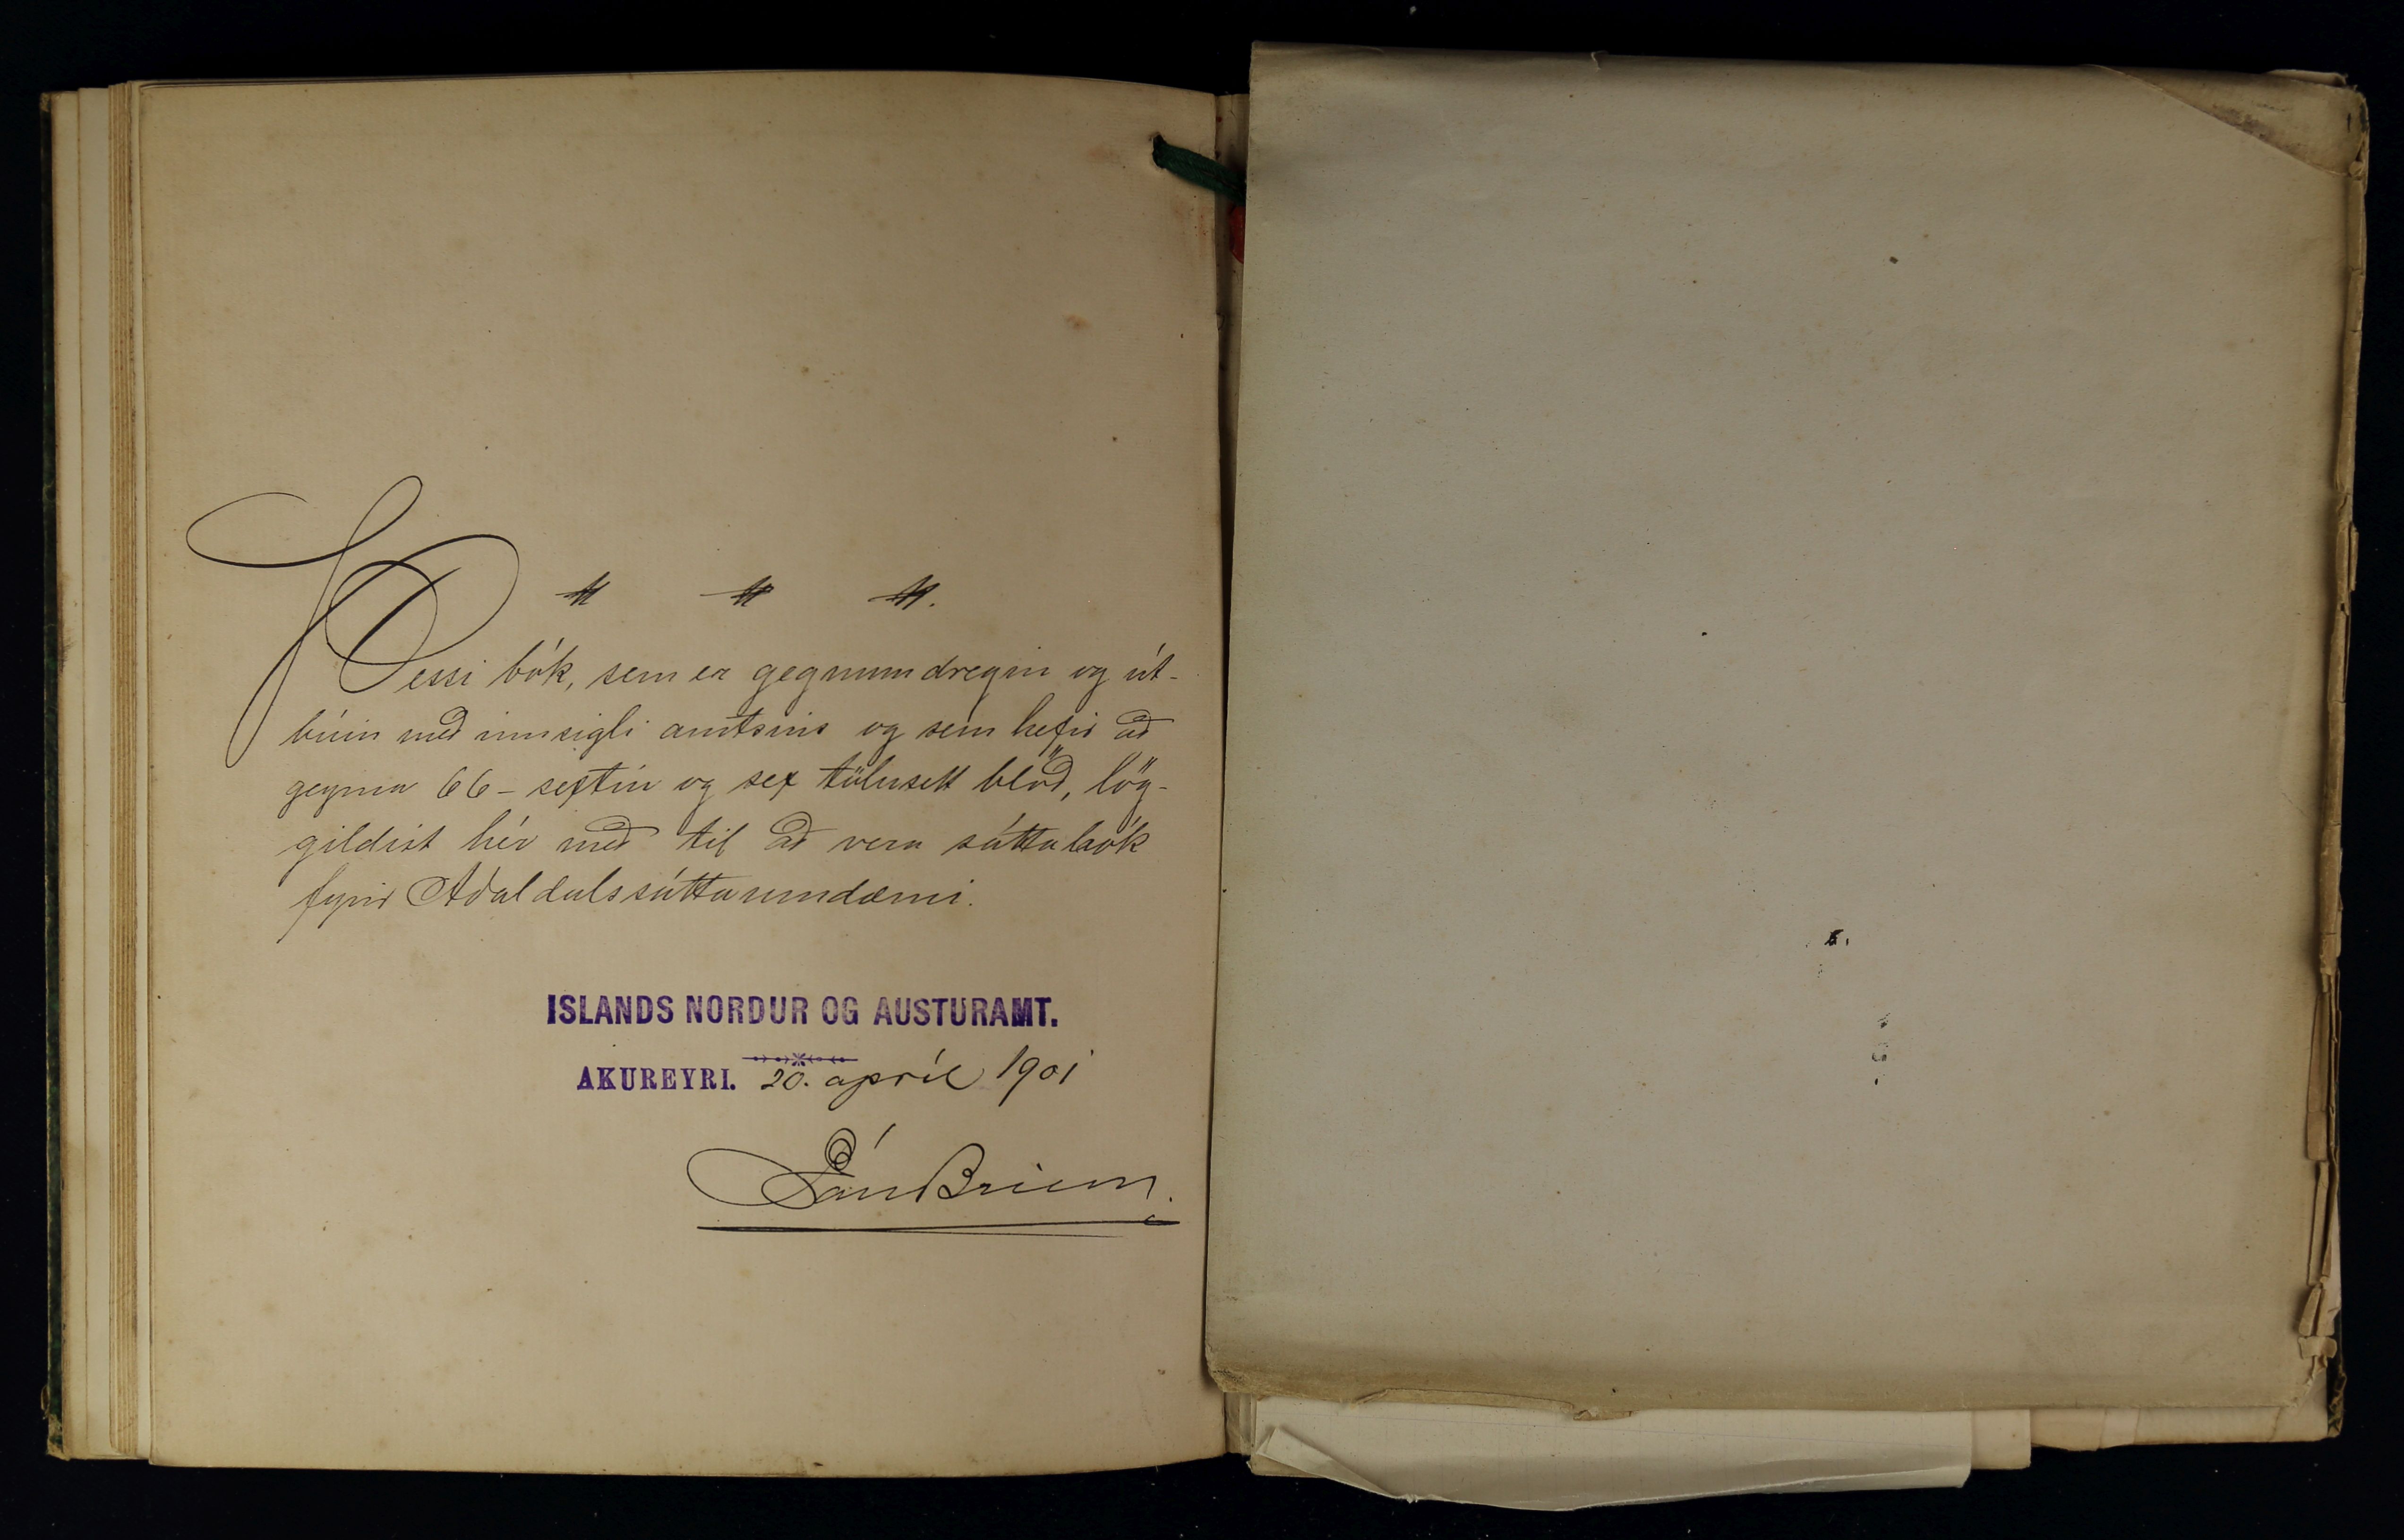 Þessi bók, sem er gegnumdregin og út-
búin með innsigli amtsins og sem hefir að
geyma 66 - sextíu og sex tölusett blöð, lög-
gildist hér með til að vera sáttabók
fyrir Aðaldalssáttaumdæmi.
ISLANDS NORDUR OG AUSTURAMT.
AKUREYRI. 20. apríl 1901
Páll Briem.